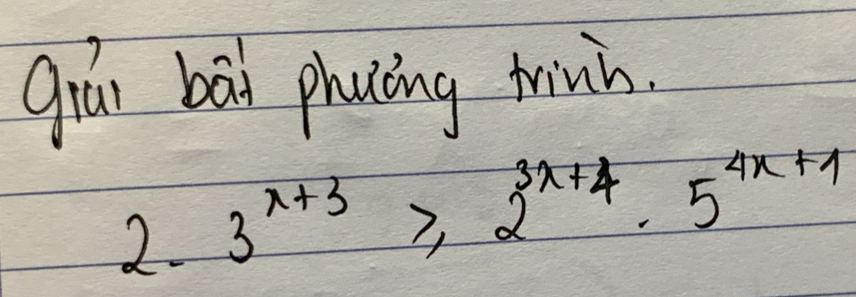 Giải bất phương trình.
2. 3^{x+3} ≥ 2^{3x+4} . 5^{4x+1}